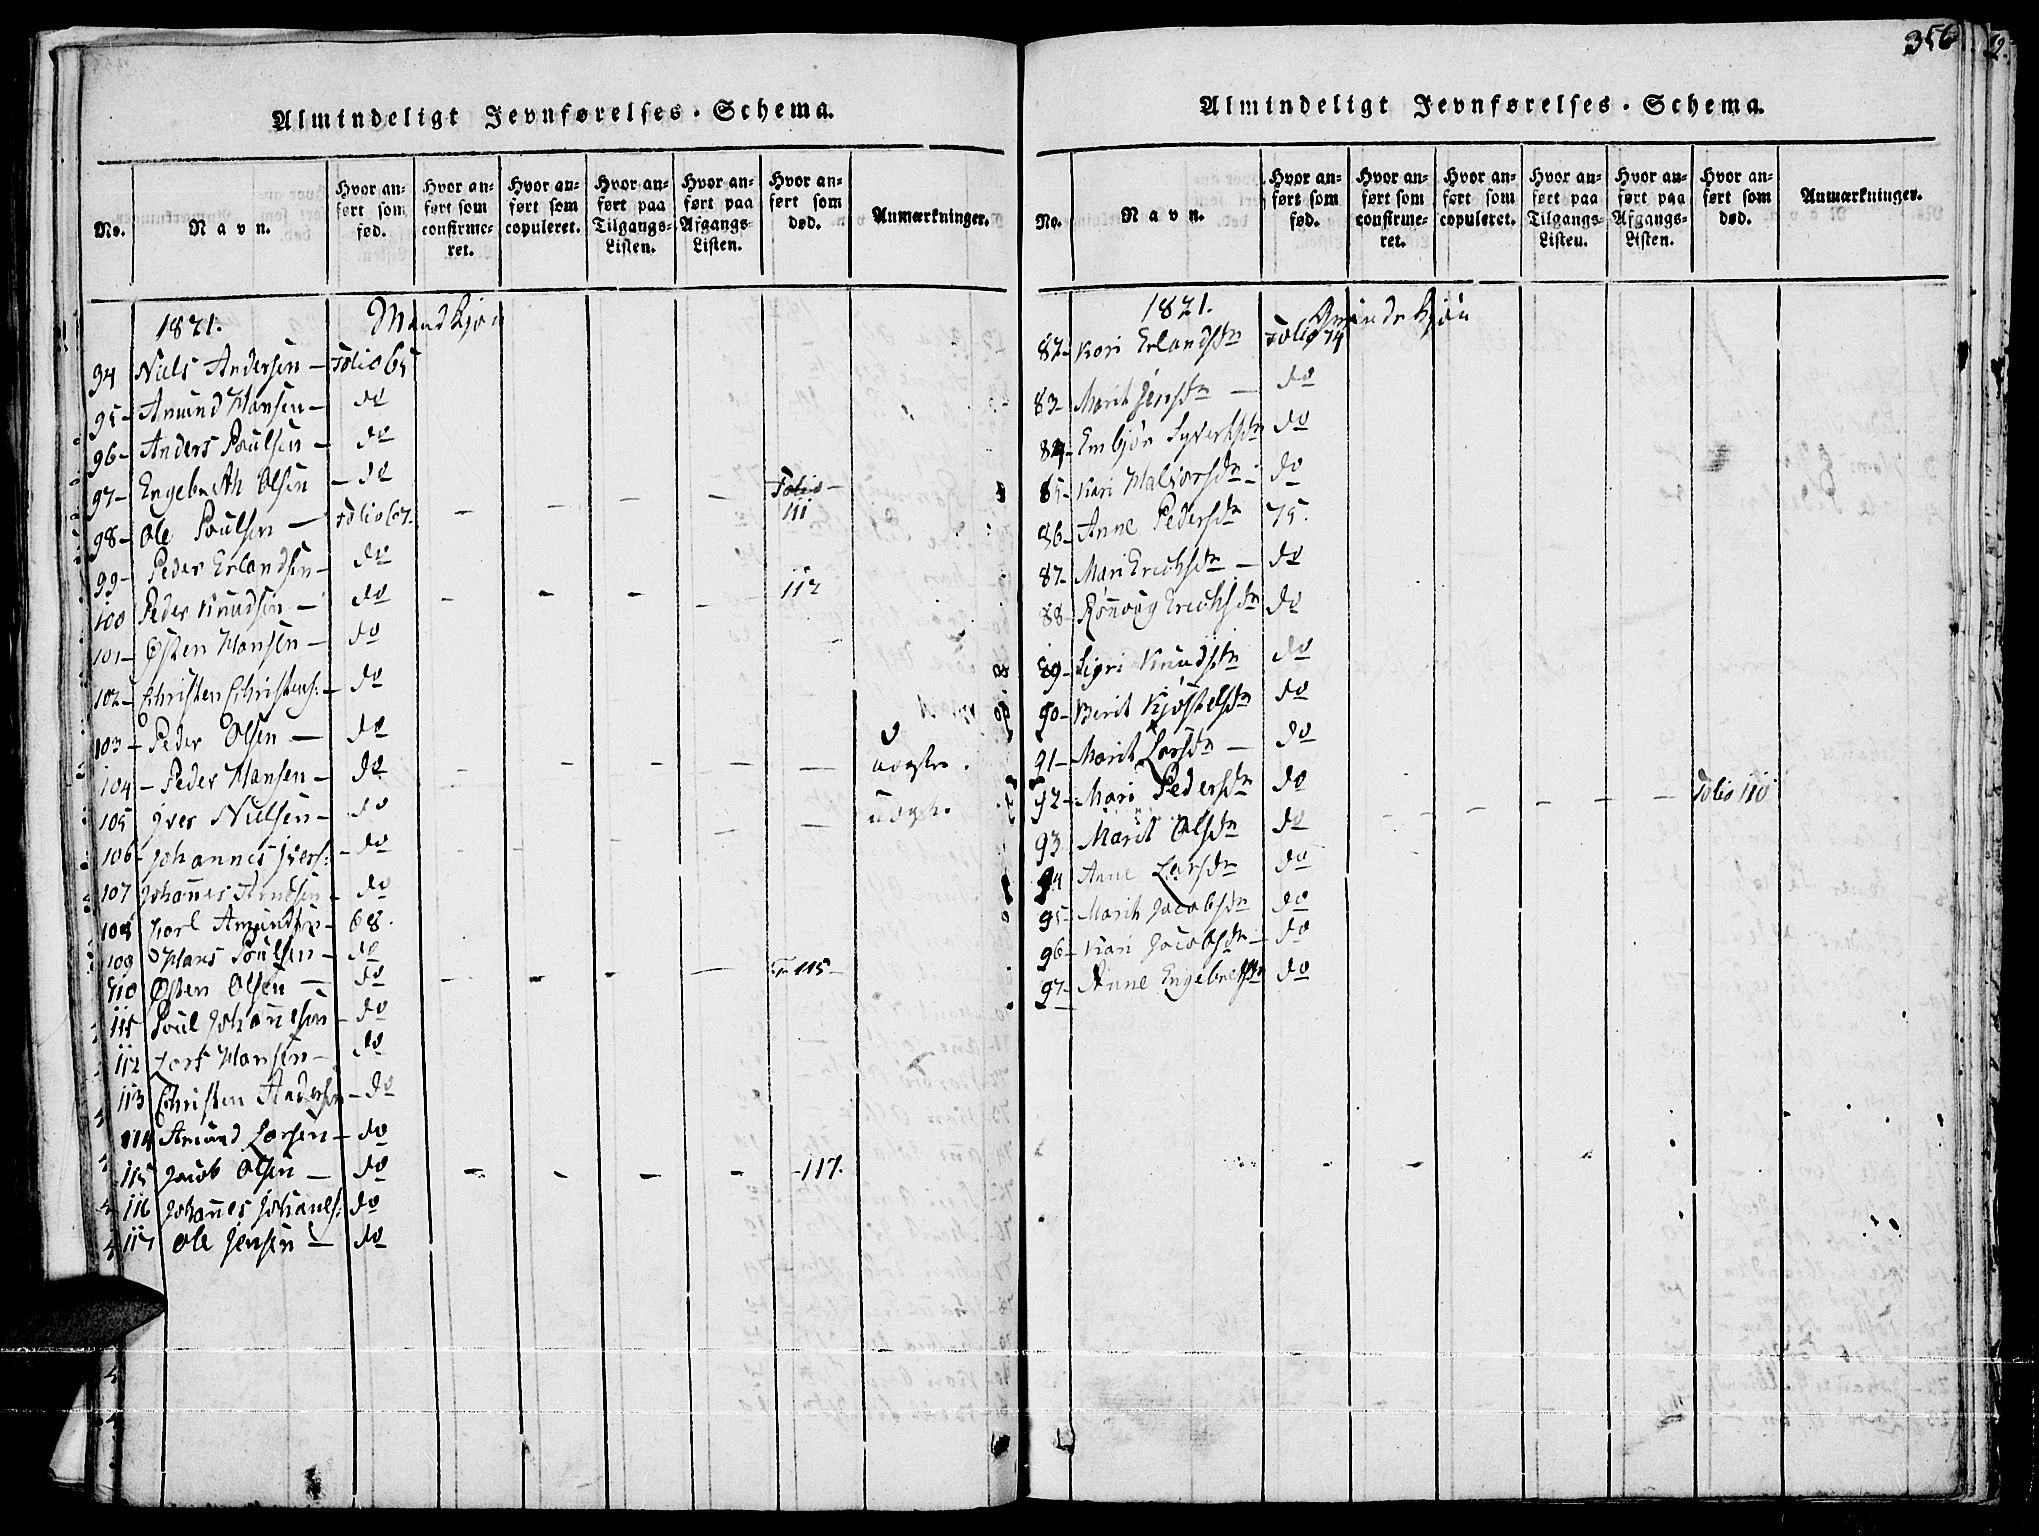 356
Almindeligt Jevnførelses-Schema.
No.
Navn.
Hvor anført som fød.
Hvor anført som confirmeret.
Hvor anført som copuleret.
Hvor anført paa Tilgangs-Listen.
Hvor anført paa Afgangs-Listen.
Hvor anført som død.
Anmærkninger.
1821. Mandkjøn
94 Niels Andersen - Folio 65
95 - Amund Hansen - do
96 - Anders Poulsen - do
97 - Engebreth Olsen - do
98 - Ole Poulsen - Folio 67. - - - Folio 111
99 - Peder Erlandsen - do
100 Peder Knudsen - do - - - - 112
101 - Østen Hansen - do
102 - Christen Christens: - do
103 - Peder Olsen - do
104 - Peder Hansen - do - - - - - uægte.
105 Iver Nielsen - do uægte.
106 - Johannes Ivers: - do
107 Johannes Arndsen - do
108 Karl Amundsen - 68.
109 Hans Poulsen - do
110 Østen Olsen - do - - - - F- 115 -
115 Poul Johannesen - do
112 Lars Hansen - do
113 Christen Andersen - do
114 Amund Larsen - do
115 Jacob Olsen - do - - - - - 117.
116 Johannes Johanes: do
117 Ole Jensen - do
Almindeligt Jevnførelses-Schema.
No.
Navn.
Hvor anført som fød.
Hvor anført som confirmeret.
Hvor anført som copuleret.
Hvor anført paa Tilgangs-Listen.
Hvor anført paa Afgangs-Listen.
Hvor anført som død.
Anmærkninger.
1821. Qvindekjøn
82 - Kari Erlandsdr Folio 74
83 - Marit Jensdr - do
84 - Embjør Syvertsdr do
85 - Kari Halvorsdr - do
86 - Anne Pedersdr 75.
87 - Mari Erichsdr - do
88 - Rønnaug Erichsdr do
89 - Sigri Knudsdr do
90 - Berit Kjøstelsdr do
91 - Marit Larsdr - do
92 - Mari Pedersdr do - - - - Folio 110
93 Marit Olsdr do
94 Anne Larsdr do
95 - Marit Jacobsdr do
96 - Kari Jacobsdr - do
97 - Anne Engebretsdr do